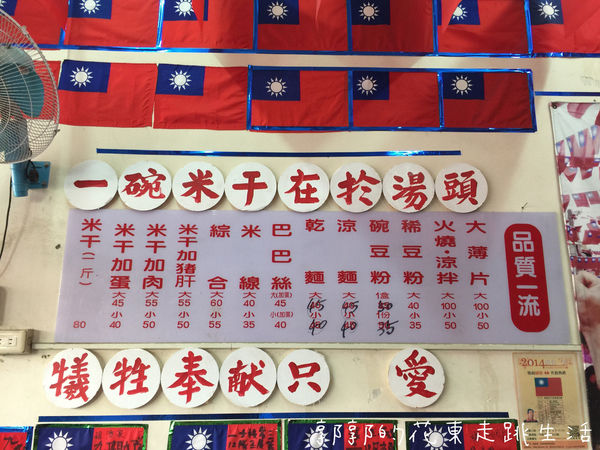 一碗米干在於湯頭
品質一流
大薄片 大100 小50
火燒涼拌 大100 小50
稀豆粉 大40 小35
碗豆粉 1盒 50 35
涼麵 大45 小40
乾麵 大45 小40
巴巴絲 大(加蛋)45 小(加蛋)40
米線 大40 小35
綜合 大60 小55
米干加豬肝 大55 小50
米干加肉 大55 小50
米干加蛋 大45 小40
米干(一斤) 80
犧牲奉献只 愛
2014
郭郭的花東走跳生活